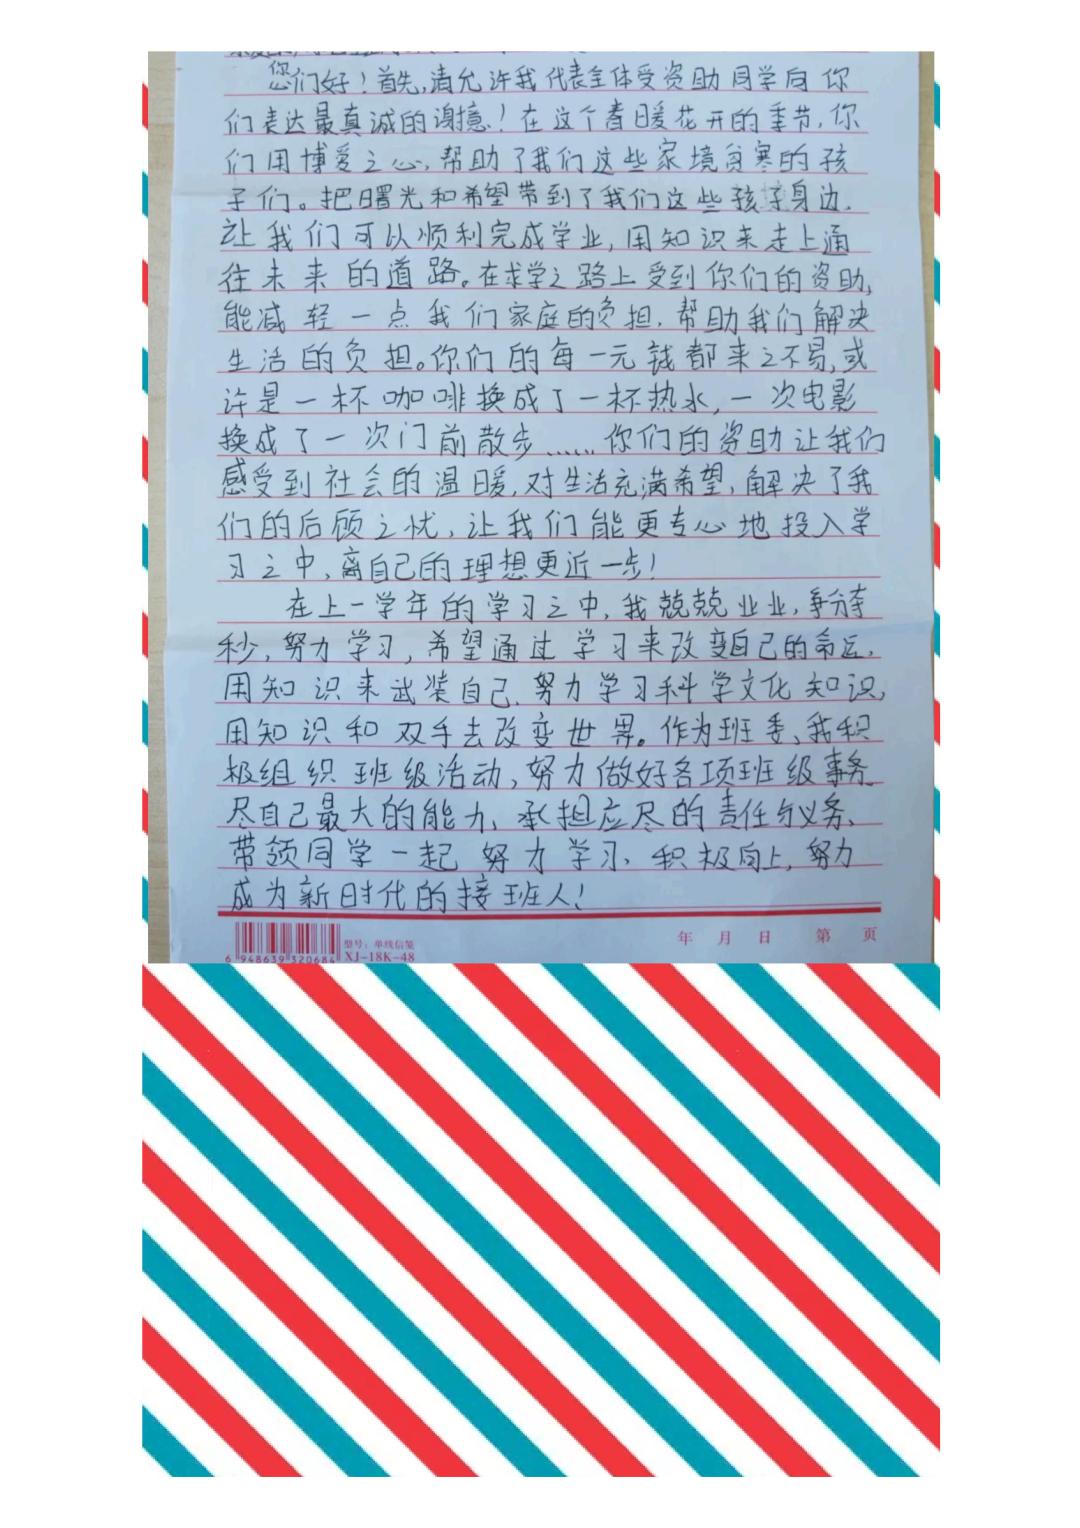 您们好！首先,请允许我代表全体受资助同学向你
们表达最真诚的谢意！在这个春暖花开的季节,你
们用博爱之心,帮助了我们这些家境贫寒的孩
子们。把曙光和希望带到了我们这些孩子身边.
让我们可以顺利完成学业,用知识来走上通
往未来的道路。在求学之路上受到你们的资助,
能减轻一点我们家庭的负担.帮助我们解决
生活的负担。你们的每一元钱都来之不易,或
许是一杯咖啡换成了一杯热水,一次电影
换成了一次门前散步......你们的资助让我们
感受到社会的温暖,对生活充满希望,解决了我
们的后顾之忧,让我们能更专心地投入学
习之中,离自己的理想更近一步!
在上一学年的学习之中,我兢兢业业,争分夺
秒,努力学习,希望通过学习来改变自己的命运.
用知识来武装自己.努力学习科学文化知识,
用知识和双手去改变世界。作为班委、我积
极组织班级活动,努力做好各项班级事务
尽自己最大的能力、承担应尽的责任与义务、
带领同学一起努力学习、积极向上,努力
成为新时代的接班人!
6 948639 320684
型号：单线信笺
XJ-18K-48
年 月 日 第 页